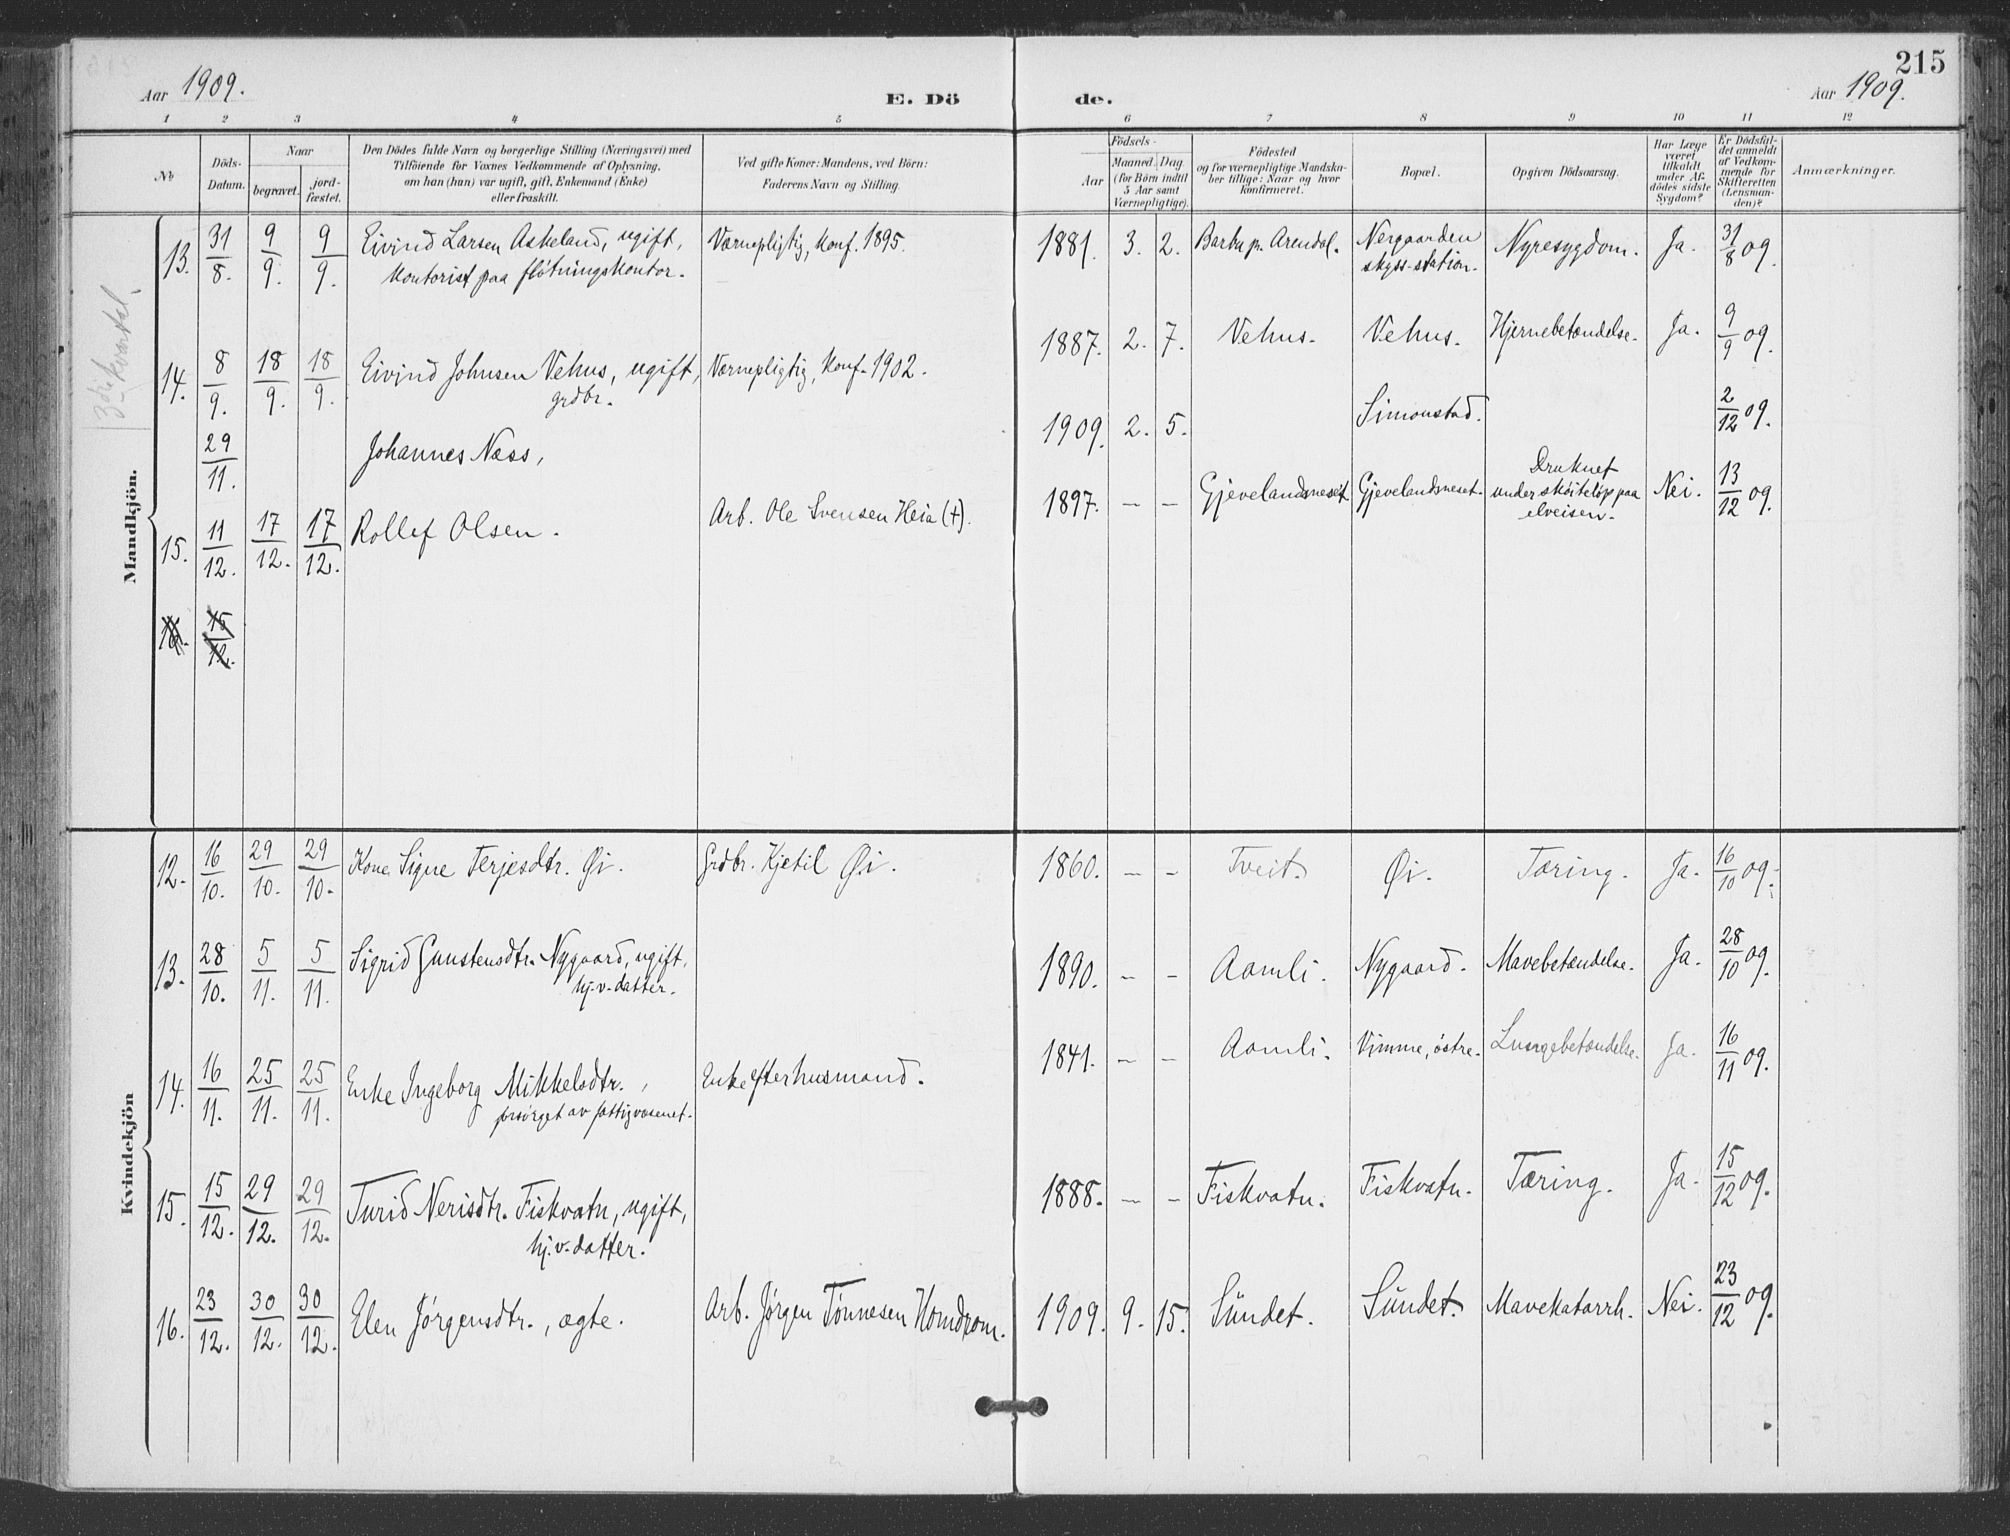 215
Aar 1909.
E. Dö
de.
Aar 1909.
1 2 3 4 5 6 7 8 9 10 11 12
No
Döds-
Datum.
Naar
begravet.
jord-
fæstet.
Den Dödes fulde Navn og borgerlige Stilling (Næringsvei) med
Tilföiende for Voxnes Vedkommende af Oplysning,
om han (hun) var ugift, gift, Enkemand (Enke)
eller fraskilt.
Ved gifte Koner: Mandens, ved Börn:
Faderens Navn og Stilling.
Födsels-
Aar
Maaned. Dag
(for Börn indtil
5 Aar samt
Værnepligtige).
Födested
og for værnepligtige Mandska-
ber tillige: Naar og hvor
konfirmeret.
Bopæl.
Opgiven Dödsaarsag.
Har Læge
været
tilkaldt
under Af-
dödes sidste
Sygdom?
Er Dödsfal-
det anmeldt
af Vedkom-
mende for
Skifteretten
(Lensman-
den)?
Anmærkninger.
Mandkjön.
13. 31/8. 9/9. 9/9. Eivind Larsen Askeland, ugift,
kontorist paa fløtningskontor.
Værnepligtig, konf. 1895.
1881. 3. 2. Barbu pr. Arendal. Nergaarden
skyss-station.
Nyresygdom. Ja. 31/8 09.
14. 8/9. 18/9. 18/9. Eivind Johnsen Vehus, ugift,
grdbr.
Værnepligtig, konf. 1902.
1887. 2. 7. Vehus. Vehus. Hjernebetændelse. Ja. 9/9 09.
29/11. Johannes Næss,
1909. 2. 5. Simonstad. 2/12 09.
15. 11/12. 17/12. 17/12. Rollef Olsen.
Arb. Ole Svensen Heia (†).
1897. – – Gjevelandsneset Gjevelandsneset. Druknet
under skøiteløp paa
elveisen.
Nei. 13/12 09.
16. 15/12.
Kvindekjön
12. 16/10. 29/10. 29/10. Kone Signe Terjesdtr. Øi. Grdbr. Kjetil Øi.
1860. – – Tveit. Øi. Tæring. Ja. 16/10 09.
13. 28/10. 5/11. 5/11. Sigrid Gunstensdtr. Nygaard, ugift,
hj.v. datter.
1890. – – Aamli. Nygaard. Mavebetændelse. Ja. 28/10 09.
14. 16/11. 25/11. 25/11. Enke Ingeborg Mikkelsdtr.,
forsørget av fattigvæsenet.
Enke efter husmand.
1841. – – Aamli. Vimme, östre. Lungebetændelse. Ja. 16/11 09.
15. 15/12. 29/12. 29/12. Turid Nerisdtr. Fiskvatn, ugift,
hj.v. datter.
1888. – – Fiskvatn. Fiskvatn. Tæring. Ja. 15/12 09.
16. 23/12. 30/12. 30/12. Elen Jørgensdtr., ægte.
Arb. Jørgen Tønnesen Homdrom.
1909. 9. 15. Sundet. Sundet. Mavekatarrh. Nei. 23/12 09.